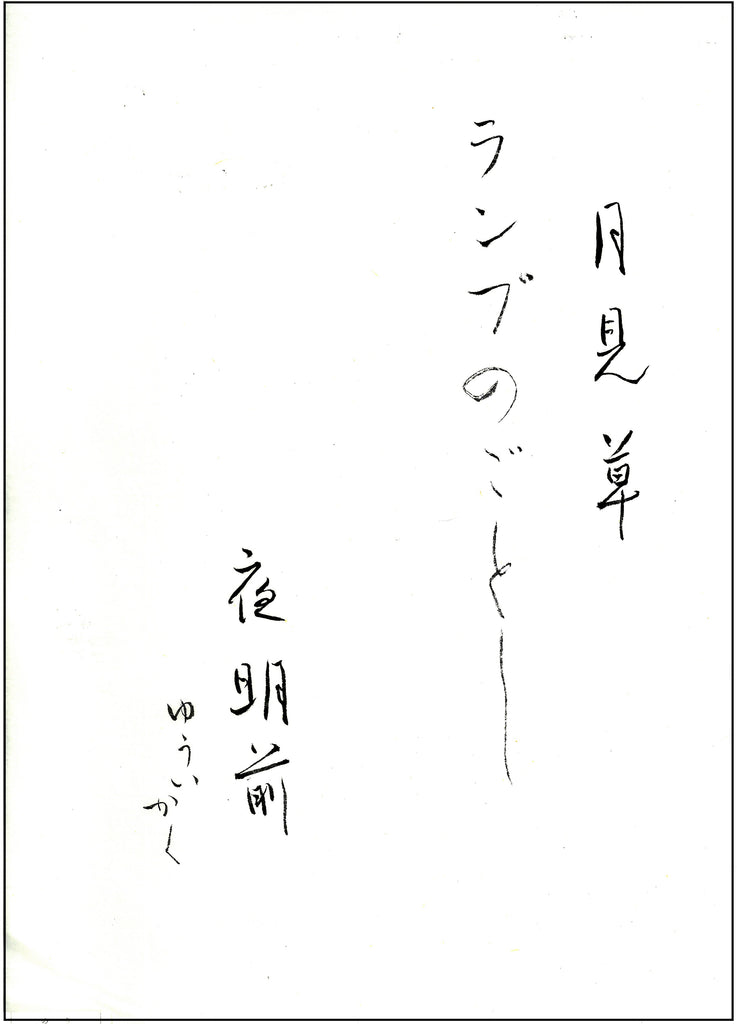 月見草
ランプのごとし
夜明前
ゆういがく